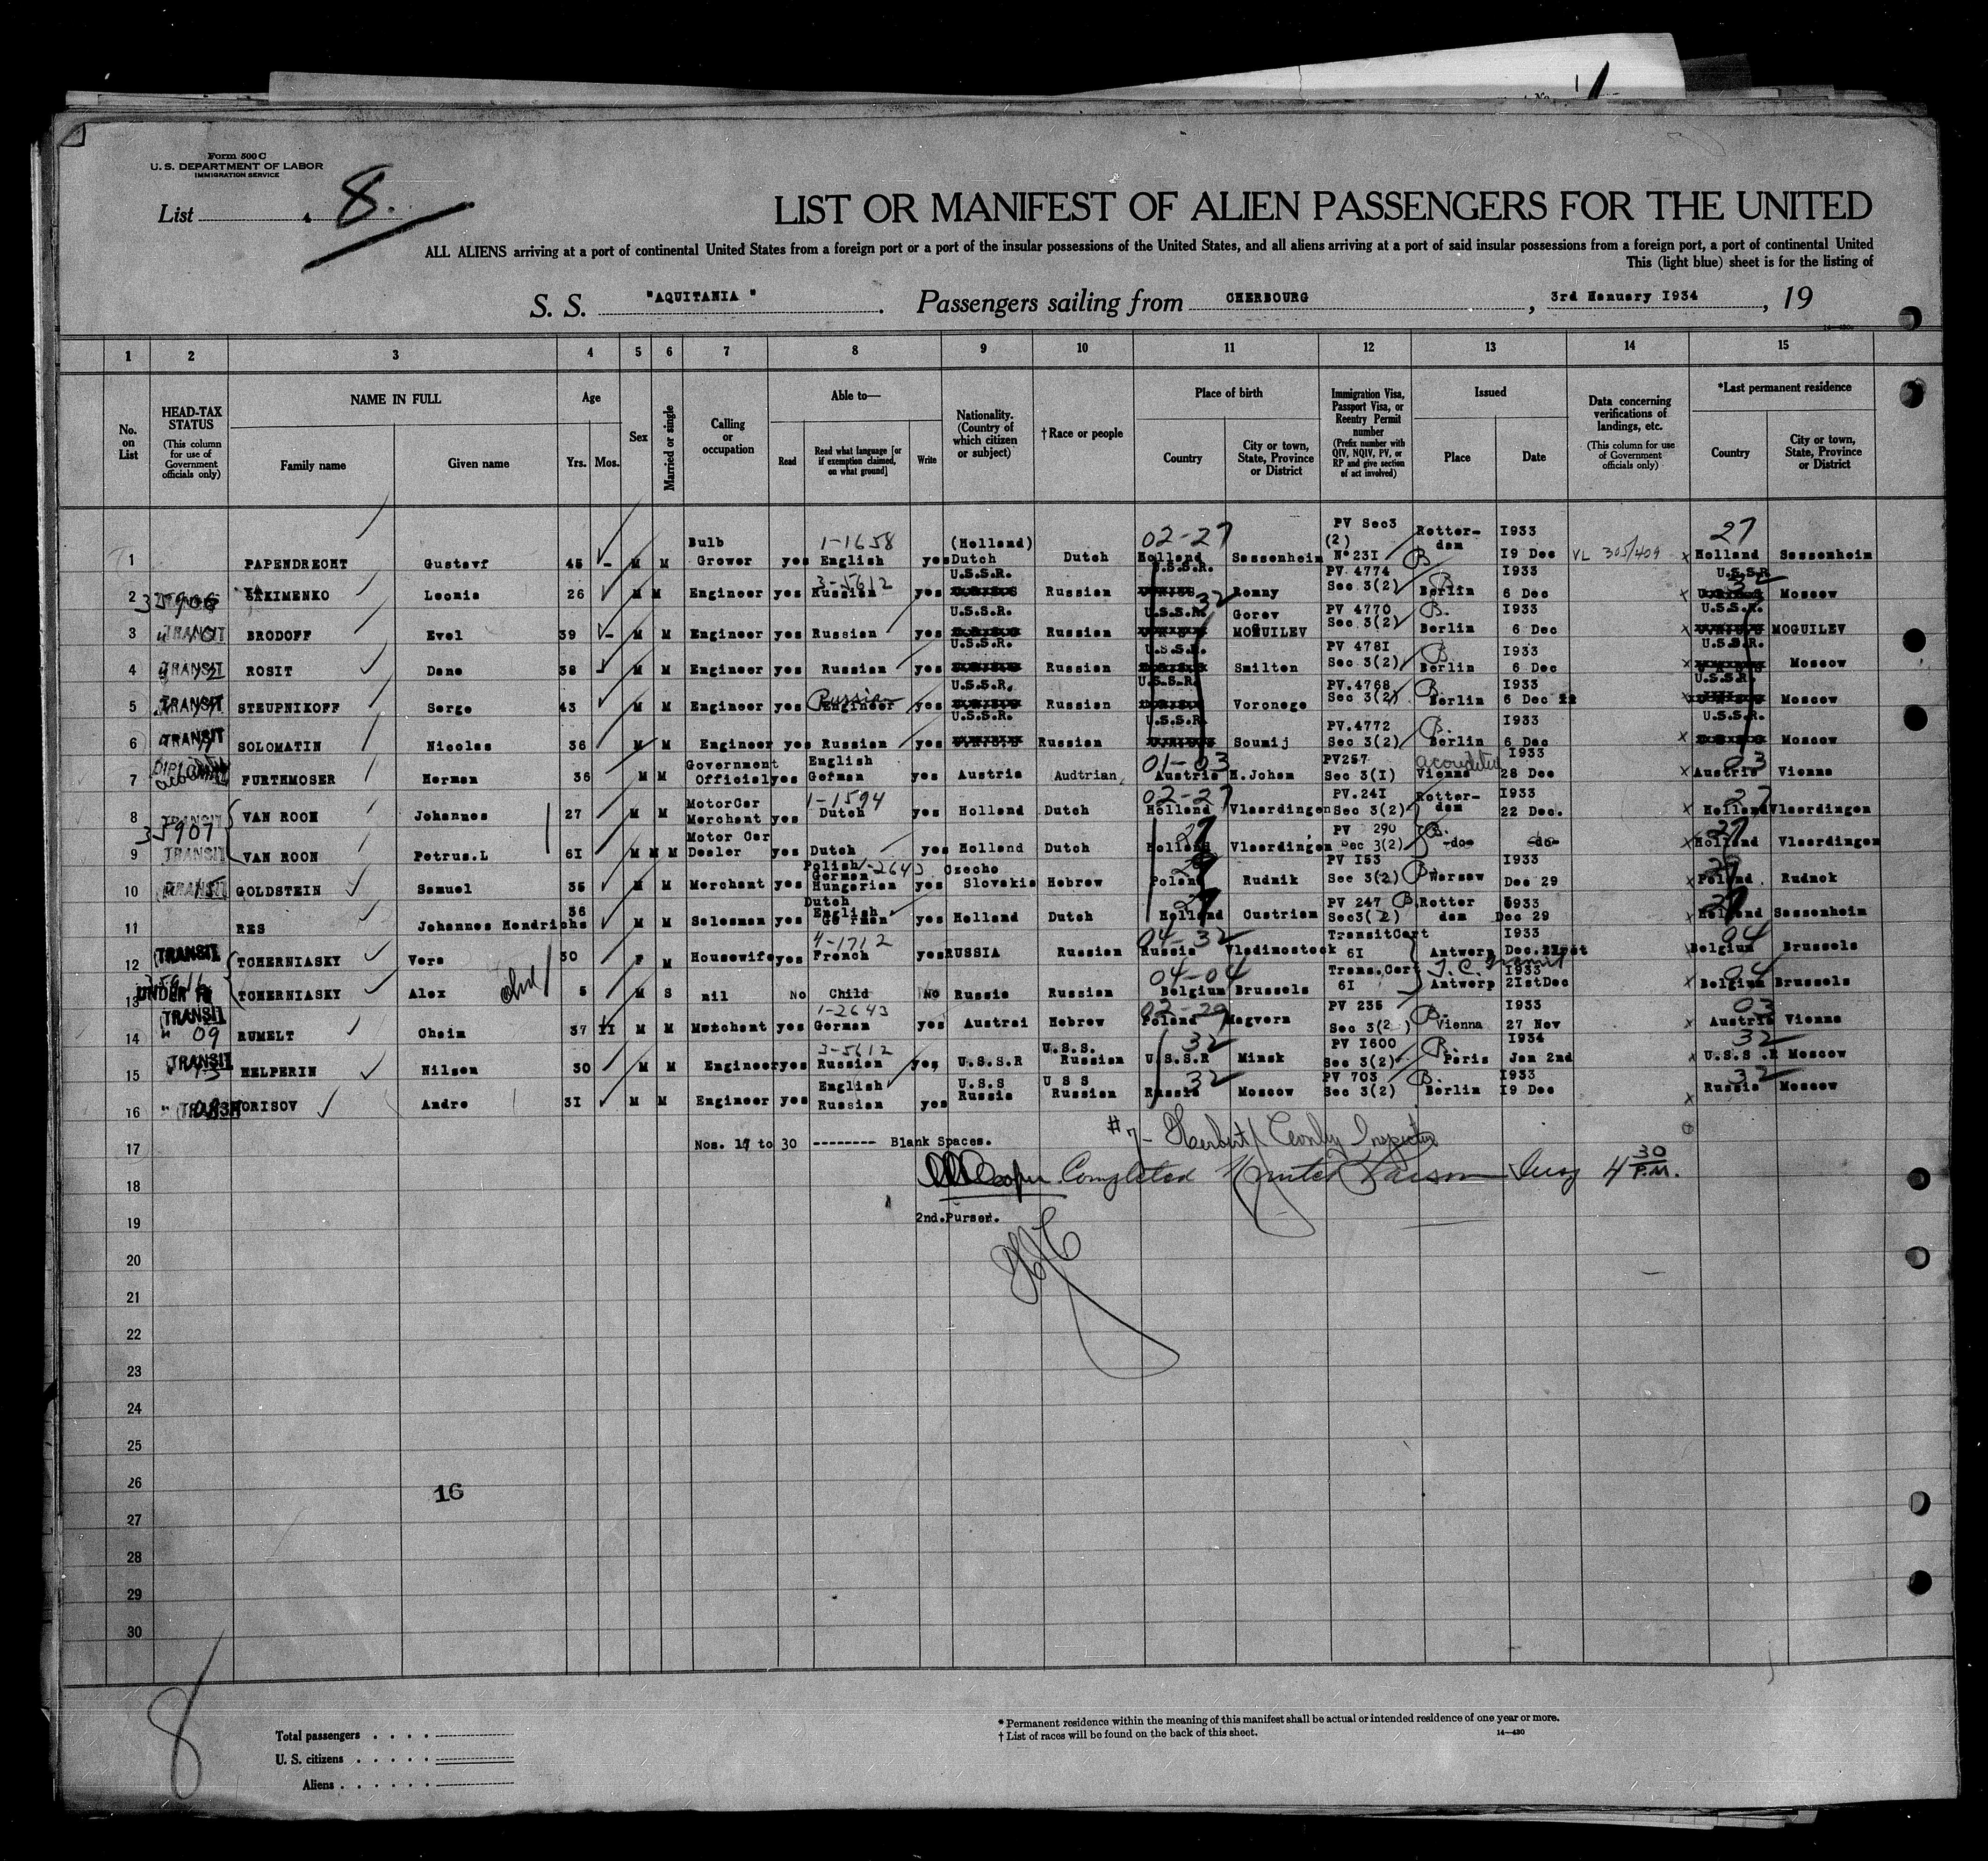 Form 500 C
U. S. DEPARTMENT OF LABOR
IMMIGRATION SERVICE
List 8.
LIST OR MANIFEST OF ALIEN PASSENGERS FOR THE UNITED
ALL ALIENS arriving at a port of continental United States from a foreign port or a port of the insular possessions of the United States, and all aliens arriving at a port of said insular possessions from a foreign port, a port of continental United
This (light blue) sheet is for the listing of
S. S. "AQUITANIA" . Passengers sailing from CHERBOURG , 3rd Hanuary I934 , 19
14—430
1 2 3 4 5 6 7 8 9 10 11 12 13 14 15
No. on List
HEAD-TAX STATUS (This column for use of Government officials only)
NAME IN FULL Family name Given name
Age Yrs. Mos.
Sex
Married or single
Calling or occupation
Able to— Read Read what language [or if exemption claimed, on what ground] Write
Nationality. (Country of which citizen or subject)
† Race or people
Place of birth Country City or town, State, Province or District
Immigration Visa, Passport Visa, or Reentry Permit number (Prefix number with QIV, NQIV, PV, or RP and give section of act involved)
Issued Place Date
Data concerning verifications of landings, etc. (This column for use of Government officials only)
*Last permanent residence Country City or town, State, Province or District
1 PAPENDRECHT Gustavf 45 - M M Bulb Grower yes 1-1658 English yes (Holland) Dutch Dutch 02-27 Holland Sassenheim PV Sec3 (2) N°23I Rotter-dam I933 I9 Dec VL 305/409 x 27 Holland Sassenheim
2 35906 Leonis 26 M M Engineer yes 3-5612 Russian yes U.S.S.R. Russian U.S.S.R. Romny PV 4774 Sec 3(2) B. Berlin I933 6 Dec x U.S.S.R 32 Moscow
3 TRANSIT BRODOFF Evel 39 - M M Engineer yes Russian yes U.S.S.R. Russian U.S.S.R. 32 Gorev MOGUILEV PV 4770 Sec 3(2) B. Berlin I933 6 Dec x U.S.S.R. MOGUILEV
4 TRANSIT ROSIT Dane 38 - M M Engineer yes Russian yes U.S.S.R. Russian U.S.S.R. Smilten PV 478I Sec 3(2) B. Berlin I933 6 Dec x U.S.S.R. Moscow
5 TRANSIT STEUPNIKOFF Serge 43 M M Engineer yes Russian Engineer yes U.S.S.R. Russian U.S.S.R. Voronege PV.4768 Sec 3(2) B. Berlin I933 6 Dec x U.S.S.R. Moscow
6 TRANSIT SOLOMATIN Nicolas 36 M M Engineer yes Russian yes U.S.S.R. Russian U.S.S.R. Soumij PV.4772 Sec 3(2) B. Berlin I933 6 Dec x U.S.S.R. Moscow
7 DIPLOMAT FURTHMOSER Herman 36 M M Government Official yes English German yes Austria Audtrian 01-03 Austria H.Johem PV257 Sec 3(I) accredited Vienna I933 28 Dec x 03 Austria Vienna
8 TRANSIT VAN ROON Johannes 27 M M MotorCar Merchant yes 1-1594 Dutch yes Holland Dutch 02-27 Holland Vlaardingen PV.24I Sec 3(2) Rotter-dam I933 22 Dec. x 27 Holland Vlaardingen
9 35907 TRANSIT VAN ROON Petrus.L 6I M M M Motor Car Dealer yes Dutch yes Holland Dutch 27 Holland Vlaardingen PV 290 Sec 3(2) B. -do- -do- x 27 Holland Vlaardingen
10 TRANSIT GOLDSTEIN Samuel 35 M M Merchant yes Polish German Hungarian 1-2643 yes Czecho Slovakia Hebrew Poland Rudnik PV I53 Sec 3(2) B. Warsaw I933 Dec 29 x Poland Rudnok
11 RES Johannes Hendrichs 36 M M Salesman yes Dutch English German yes Holland Dutch 27 Holland Custrian PV 247 Sec3(2) B Rotter dam I933 Dec 29 x 27 Holland Sassenheim
12 TRANSIT TCHERNIASKY Vera 30 F M Housewife yes 4-1712 French yes RUSSIA Russian 04-32 Russia Vladimostock TransitCert 6I Antwerp I933 x 04 Belgium Brussels
13 UNDER 16 TCHERNIASKY Alex 5 M S nil No Child No Russia Russian 04-04 Belgium Brussels Trans.Cert 6I T.C. Transit Antwerp I933 2IstDec x 04 Belgium Brussels
14 TRANSIT " 09 RUMELT Chaim 37 II M M Merchant yes 1-2643 German yes Austrai Hebrew 02-29 Poland Magvern PV 235 Sec 3(2 ) B. Vienna I933 27 Nov x 03 Austria Vienna
15 TRANSIT HELPERIN Nilsen 30 M M Engineer yes 3-5612 Russian yes U.S.S.R U.S.S. Russian 32 U.S.S.R Minsk PV I600 Sec 3(2) B. Paris I934 Jan 2nd x 32 U.S.S .R Moscow
16 " TRANSIT ORISOV Andre 3I M M Engineer yes English Russian yes U.S.S Russia U S S Russian 32 Russia Moscow PV 703 Sec 3(2) B. Berlin I933 I9 Dec x 32 Russia Moscow
17 Nos. 17 to 30 -------- Blank Spaces. #7- Herbert Inspector
18 Cooper Completed 4 30 P.M.
19 2nd.Purser.
20
21
22
23
24
25
26 16
27
28
29
30
8
Total passengers . . . .
U. S. citizens . . . . .
Aliens . . . . . .
* Permanent residence within the meaning of this manifest shall be actual or intended residence of one year or more.
† List of races will be found on the back of this sheet. 14—430